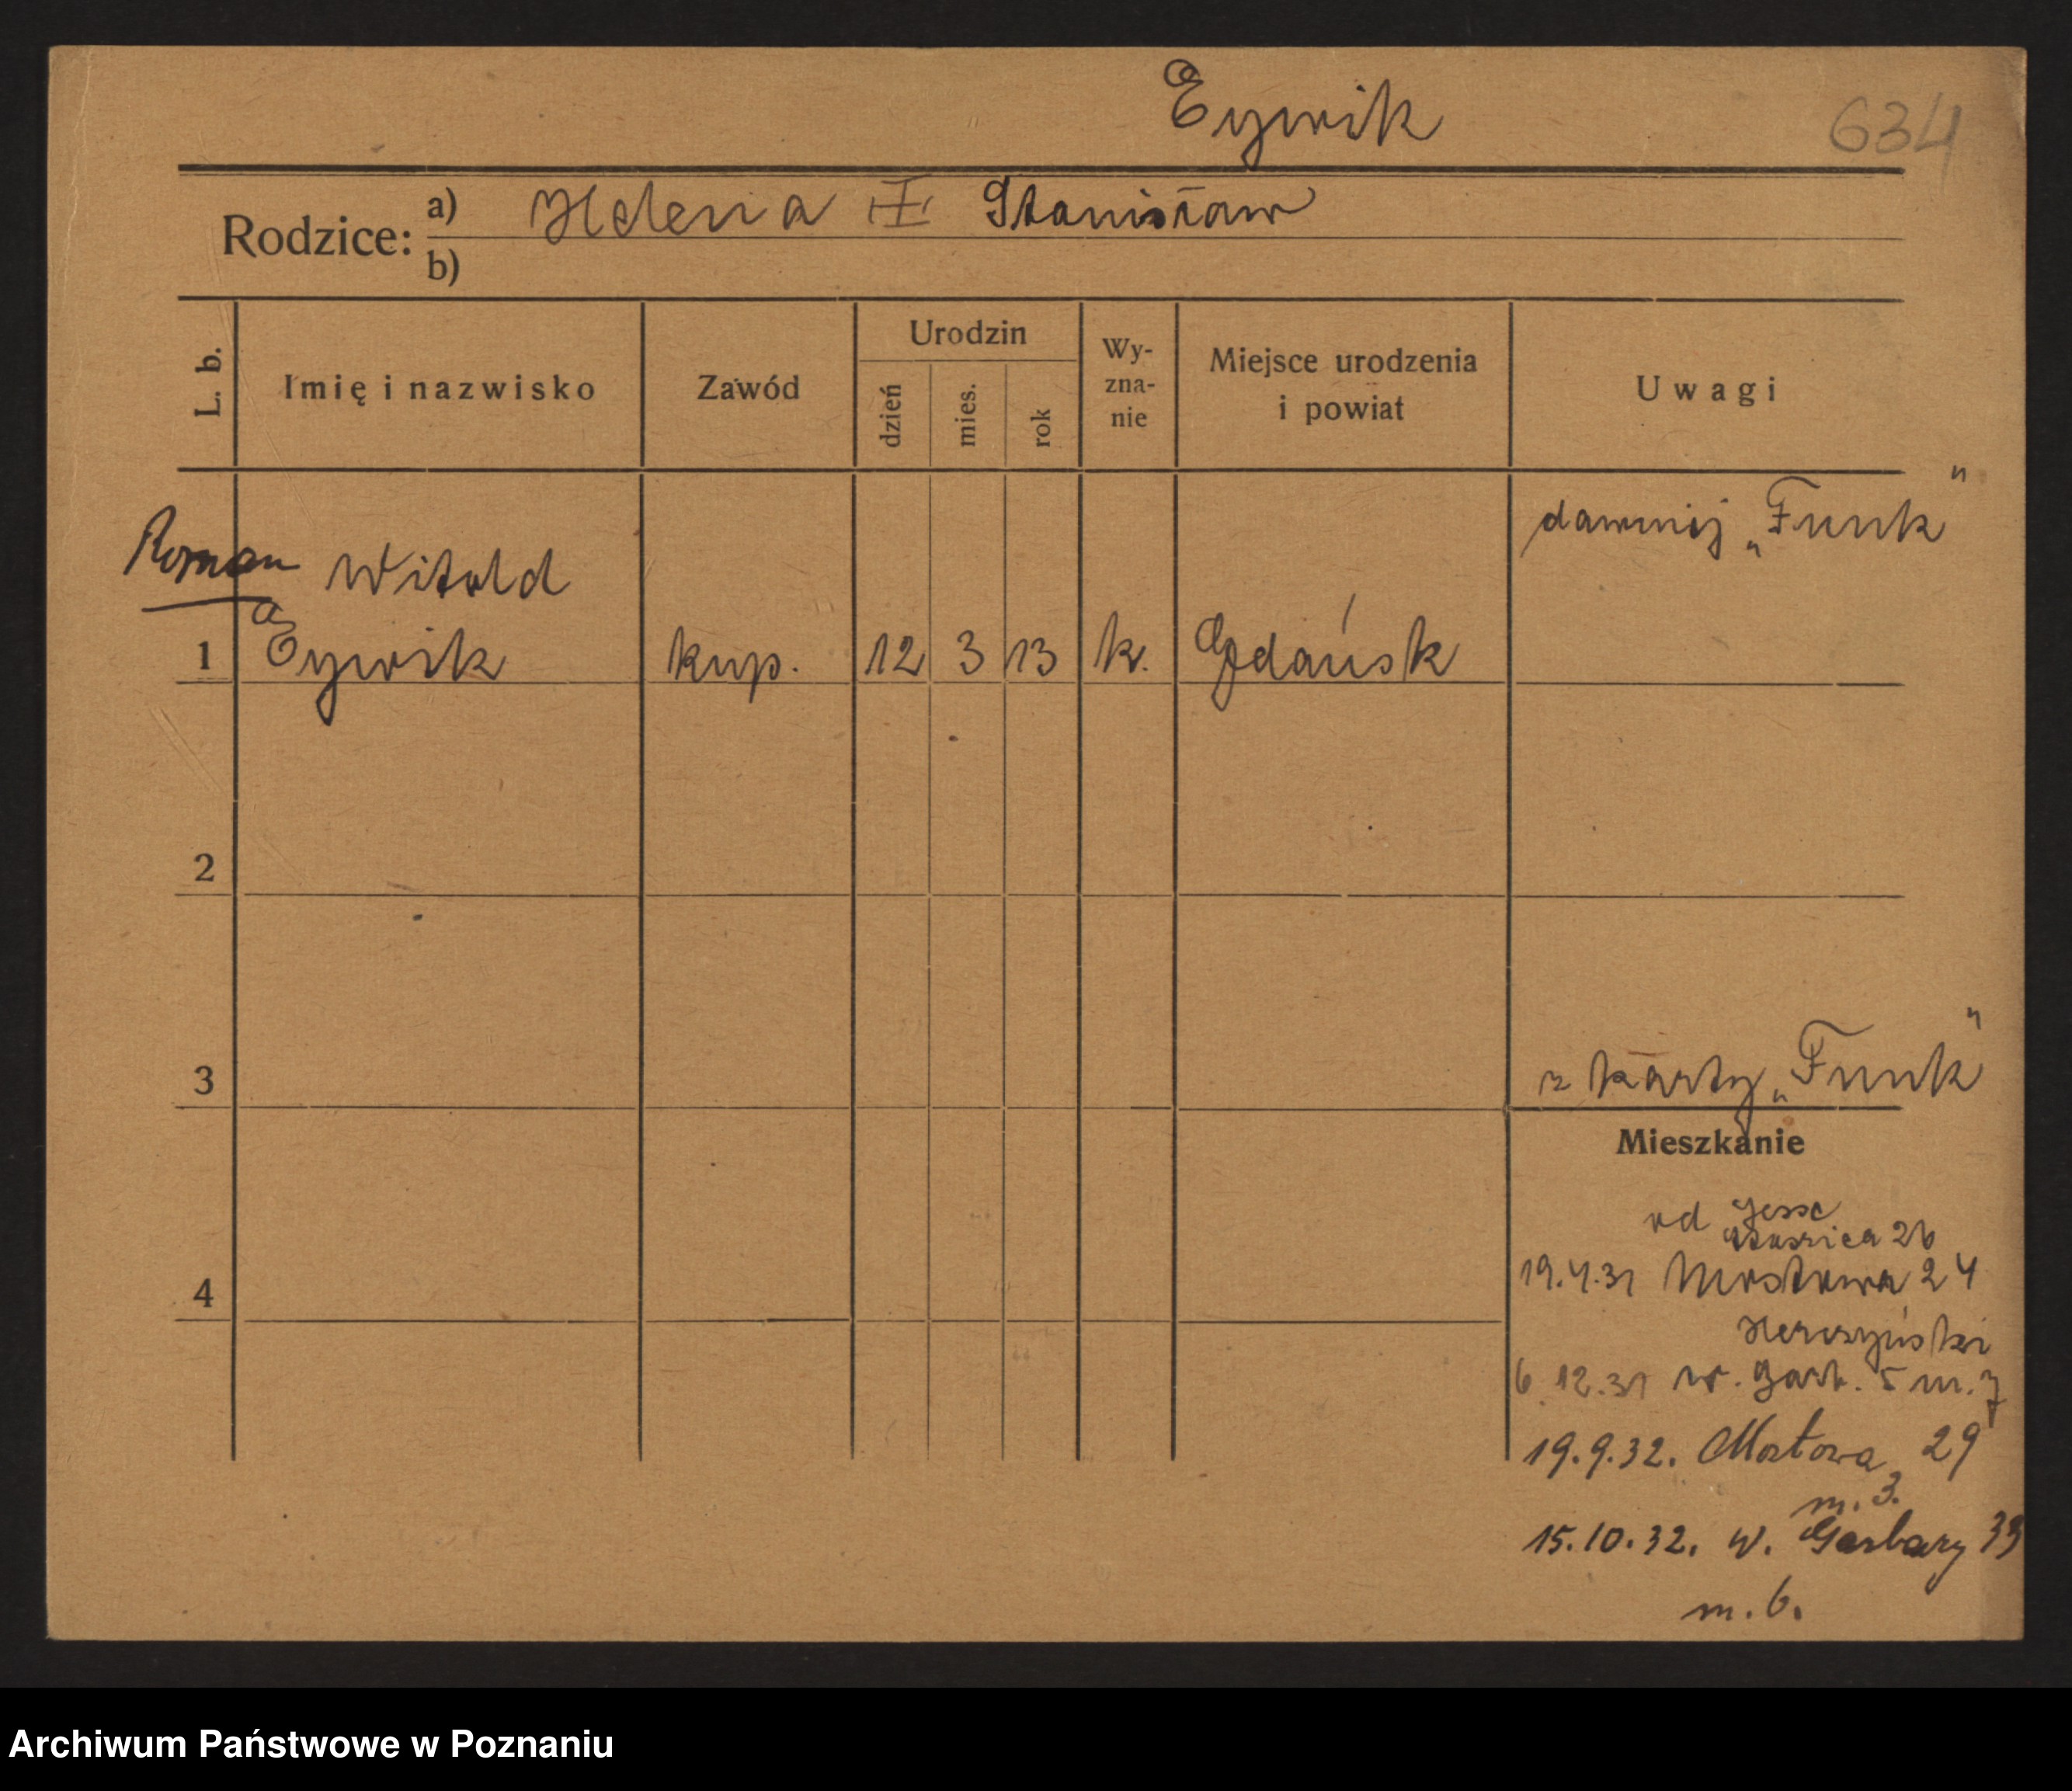 Eywik
634
Rodzice: a) Helena I Stanisław
b)
L. b. Imię i nazwisko Zawód Urodzin dzień mies. rok Wy-zna-nie Miejsce urodzenia i powiat Uwagi
dawniej „Funk"
Roman Witold
1 Eywik kup. 12 3 13 k. Gdańsk
2
3 z karty „Funk"
Mieszkanie
od
26
4 19.4.31 Mostowa 24
6.12.31 w. Garb. 5 m. 7
19.9.32. Mostowa 29
m. 3.
15.10.32. w. Garbary 33
m. 6.
Archiwum Państwowe w Poznaniu